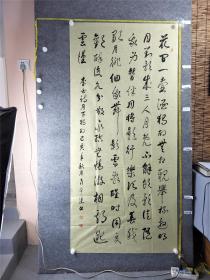 花間一壺酒獨酌無相親舉杯邀明
月對影成三人月既不解飲影徒隨
我身暫伴月將影行樂須及春我歌
月徘徊我舞影零亂醒時同交
歡醉後各分散永結無情遊相期邈
雲漢 李白詩月下獨酌